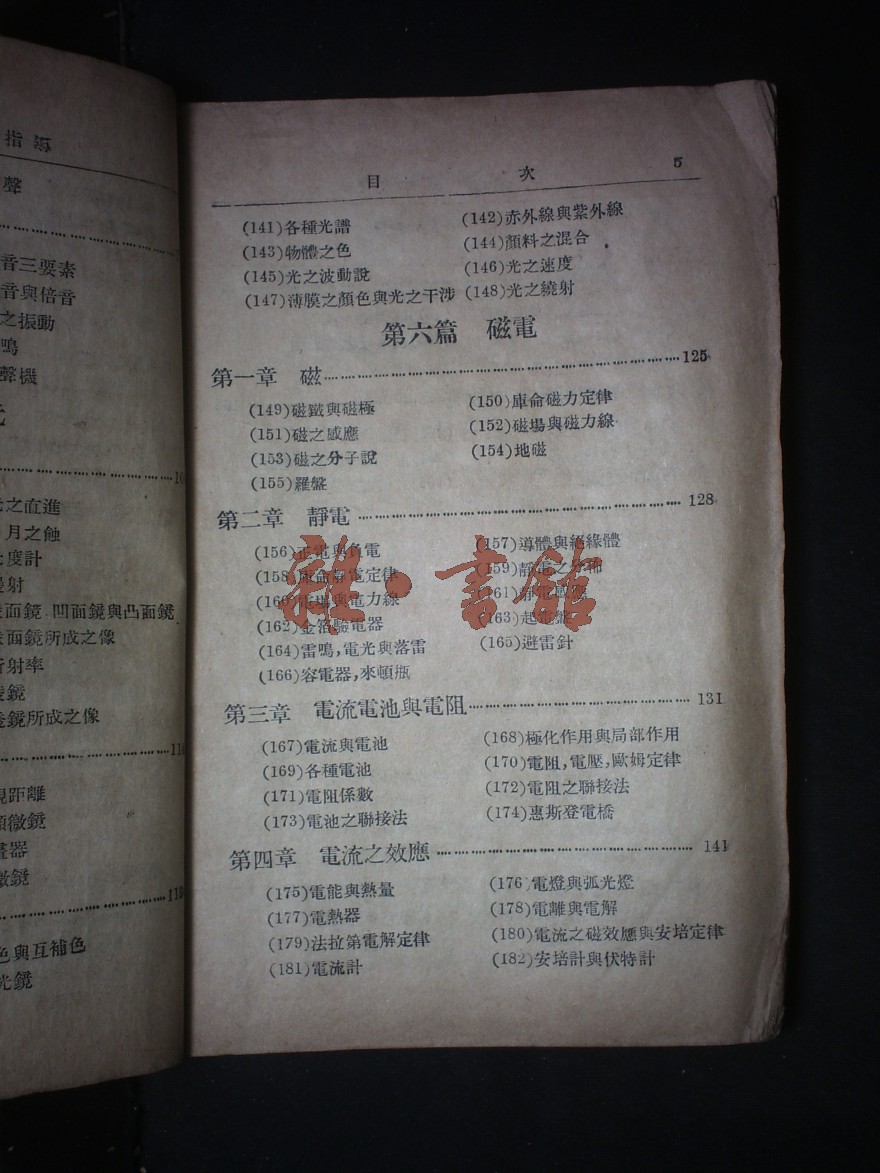 指導
聲
音三要素
音與倍音
之振動
鳴
聲機
之直進
月之蝕
度計
射
面鏡 凹面鏡與凸面鏡
面鏡所成之像
射率
鏡
鏡所成之像
距離
微鏡
器
微鏡
色與互補色
光鏡
目 次 5
(141)各種光譜 (142)赤外線與紫外線
(143)物體之色 (144)顏料之混合
(145)光之波動說 (146)光之速度
(147)薄膜之顏色與光之干涉 (148)光之繞射
第六篇 磁電
第一章 磁 125
(149)磁鐵與磁極 (150)庫侖磁力定律
(151)磁之感應 (152)磁場與磁力線
(153)磁之分子說 (154)地磁
(155)羅盤
第二章 靜電 128
(156)正電與負電 (157)導體與絕緣體
(158)庫侖靜電定律 (159)靜電之分佈
(160)電場與電力線 (161)靜電感應
(162)金箔驗電器 (163)起電盤
(164)雷鳴,電光與落雷 (165)避雷針
(166)容電器,來頓瓶
第三章 電流電池與電阻 131
(167)電流與電池 (168)極化作用與局部作用
(169)各種電池 (170)電阻,電壓,歐姆定律
(171)電阻係數 (172)電阻之聯接法
(173)電池之聯接法 (174)惠斯登電橋
第四章 電流之效應 141
(175)電能與熱量 (176)電燈與弧光燈
(177)電熱器 (178)電離與電解
(179)法拉第電解定律 (180)電流之磁效應與安培定律
(181)電流計 (182)安培計與伏特計
雜·書館